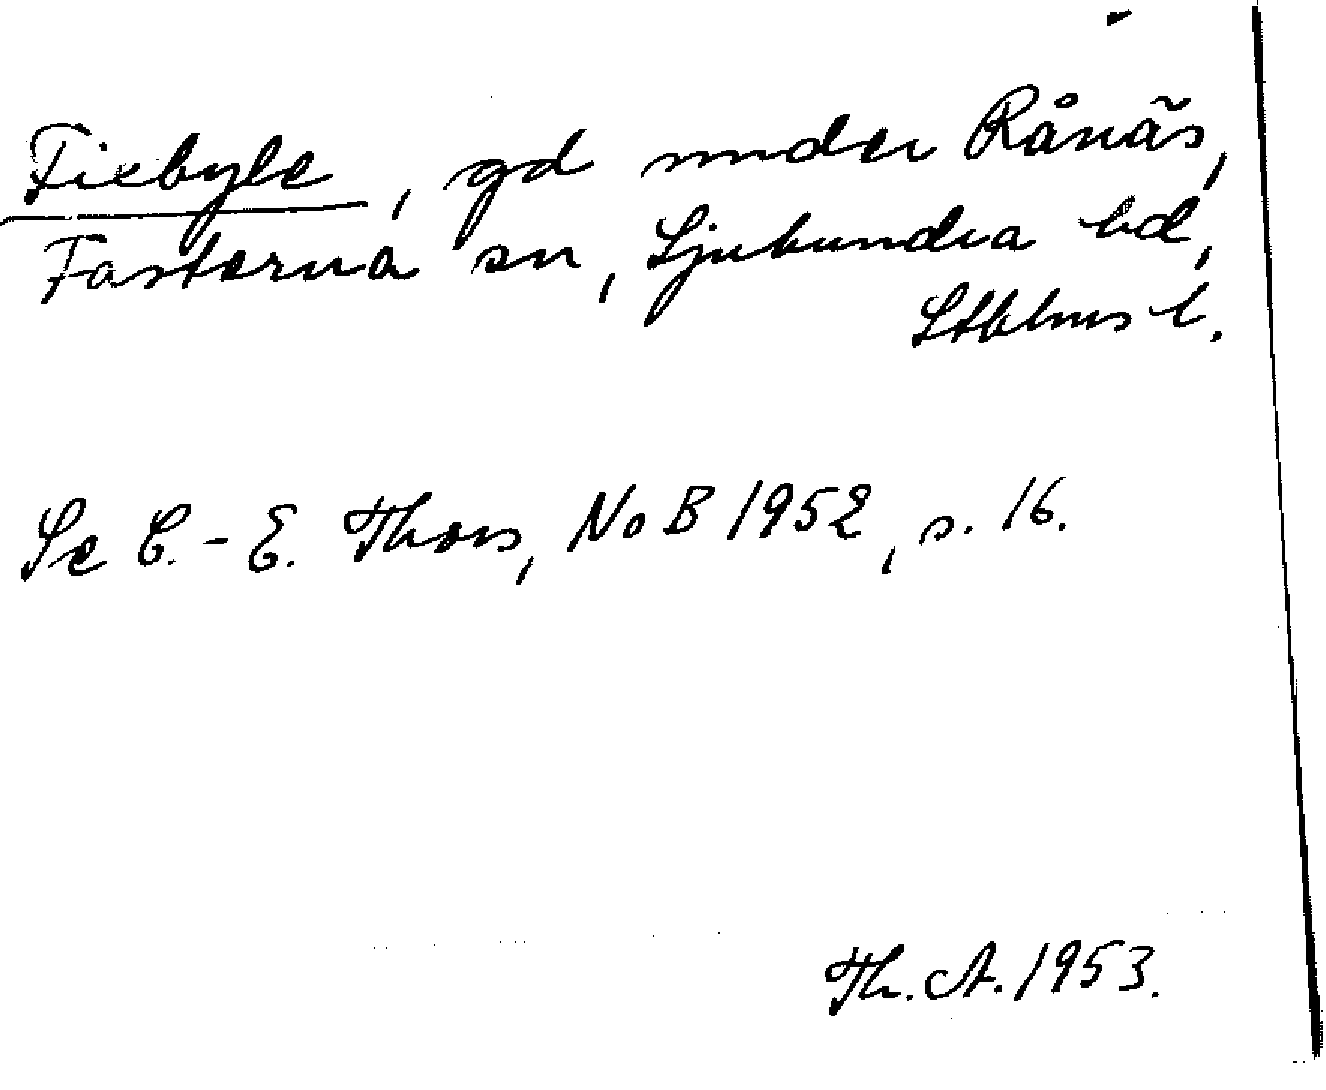 Fiebyle, gd under Rånäs,
Fasterna sn, Sjuhundra hd,
Stblms l.
Se C.-E. Thors, NoB 1952, s. 16.
Th. A. 1953.